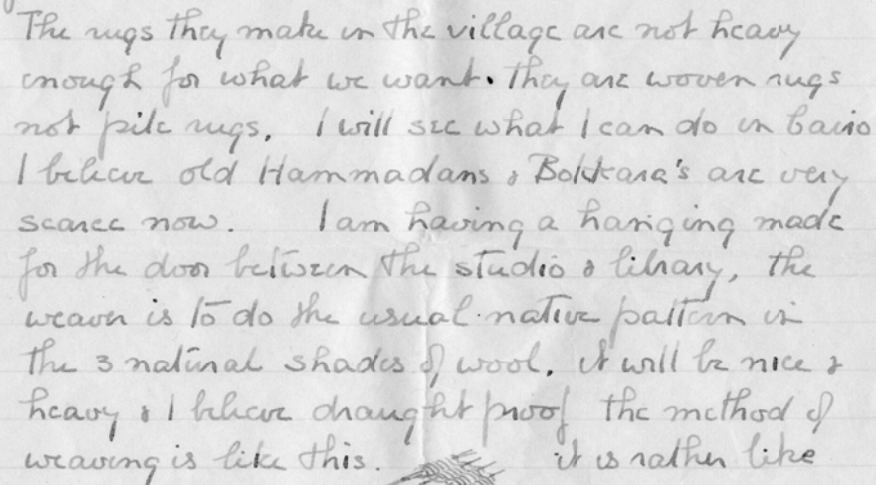 The rugs they make in the village are not heavy
enough for what we want. They are woven rugs
not pile rugs. I will see what I can do in Cairo
I believe old Hammadans & Bokkara's are very
scarce now. I am having a hanging made
for the door between the studio & library, the
weaver is to do the usual native pattern in
the 3 natural shades of wool. it will be nice &
heavy & I believe draught proof the method of
weaving is like this. it is rather like